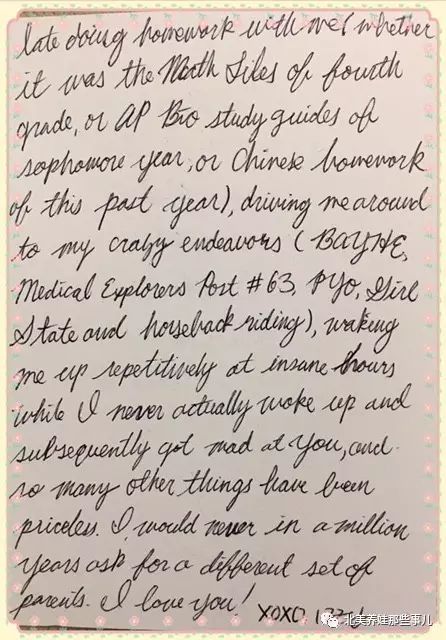 late doing homework with me (whether
it was the Math Files of fourth
grade, or AP Bio study guides of
sophomore year, or Chinese homework
of this past year), driving me around
to my crazy endeavors (BAYHE,
Medical Explorers Post #63, PYO, Girl
State and horseback riding), waking
me up repetitively at insane hours
while I never actually woke up and
subsequently got mad at you, and
so many other things have been
priceless. I would never in a million
years ask for a different set of
parents. I love you!
XOXO,
北美养娃那些事儿